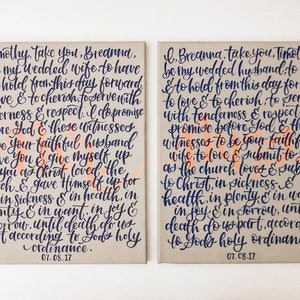 Timothy, take you, Breanna,
be my wedded wife, to have
hold from this day forward,
& to cherish, to serve with
tenderness & respect. I do promise
before God & these witnesses
your faithful husband
you & give myself up
you as Christ loved the
church, & gave Himself up for
in sickness & in health, in
plenty & in want, in joy &
sorrow, until death do us
part according to God's holy
ordinance.
07.08.17
I, Breanna, take you, Timo
be my wedded husband, to
& to hold from this day for
to love & to cherish, to se
with tenderness & respect
promise before God &
witnesses to be your faithful
wife to love & submit to
as the church loves & sub
to Christ, in sickness, &
health, in plenty & in wa
in joy & in sorrow, until
death do us part, accord
to God's holy ordinance
07.08.17